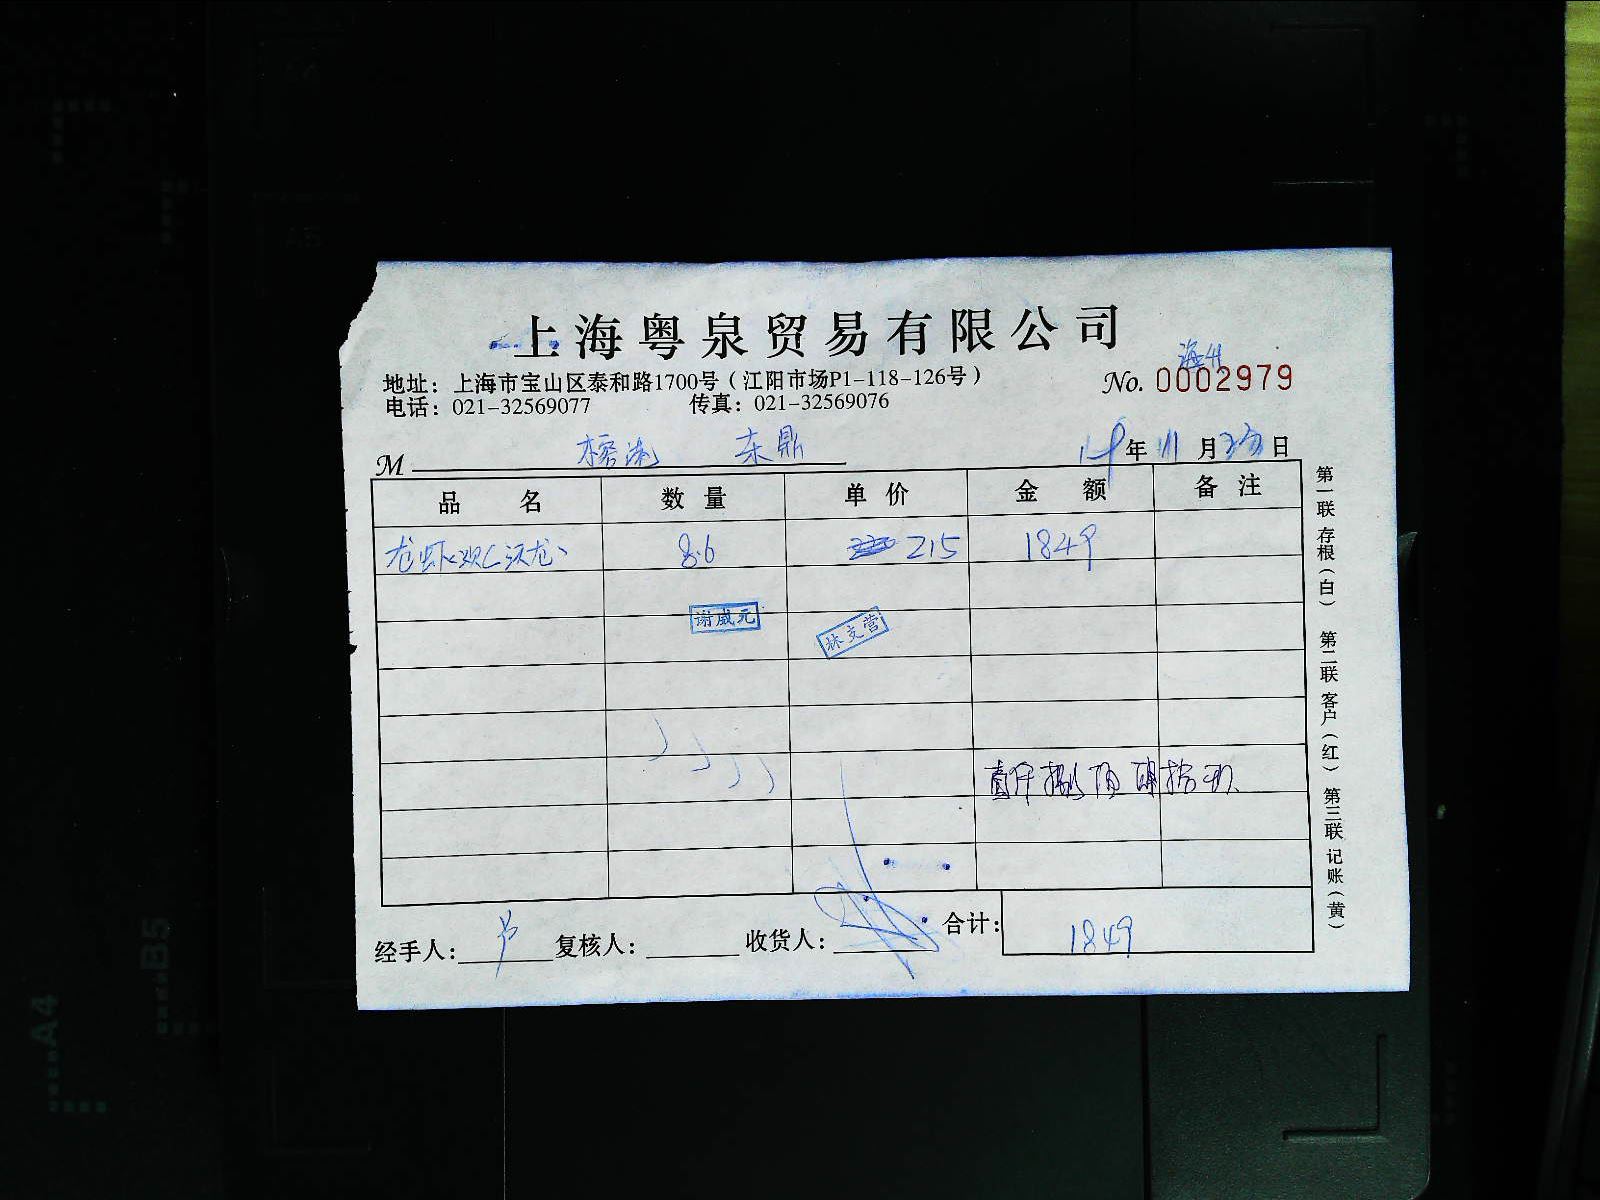 上海粤泉贸易有限公司
海鲜
地址：上海市宝山区泰和路1700号（江阳市场P1-118-126号）
No. 0002979
电话：021-32569077 传真：021-32569076
M 榕港 东鼎
年 11 月 日
品名 数量 单价 金额 备注
龙虾 8.6 215 1849
谢威元
林支营
壹仟捌佰肆拾玖
经手人： 复核人： 收货人： 合计： 1849
第一联 存根（白） 第二联 客户（红） 第三联 记账（黄）
A4
B5
A5